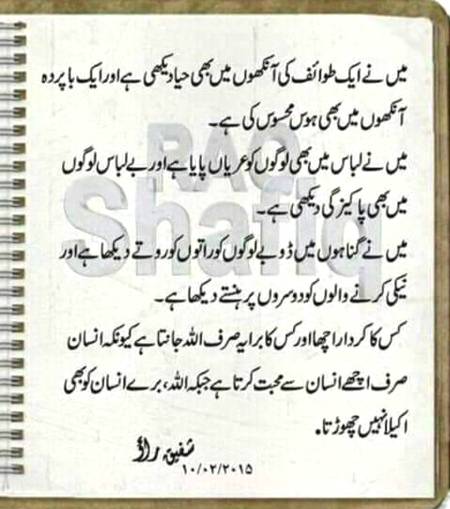 میں نے ایک طوائف کی آنکھوں میں بھی حیا دیکھی ہے اور ایک با پردہ
آنکھوں میں بھی ہوس محسوس کی ہے۔
میں نے لباس میں بھی لوگوں کو عریاں پایا ہے اور بے لباس لوگوں
میں بھی پاکیزگی دیکھی ہے۔
میں نے گناہوں میں ڈوبے لوگوں کو راتوں کو روتے دیکھا ہے اور
نیکی کرنے والوں کو دوسروں پر ہنستے دیکھا ہے۔
کس کا کردار اچھا اور کس کا برا یہ صرف اللہ جانتا ہے کیونکہ انسان
صرف اچھے انسان سے محبت کرتا ہے جبکہ اللہ، برے انسان کو بھی
اکیلا نہیں چھوڑتا۔
شفیق راؤ
۱۰/۰۲/۲۰۱۵
RAO
Shafiq